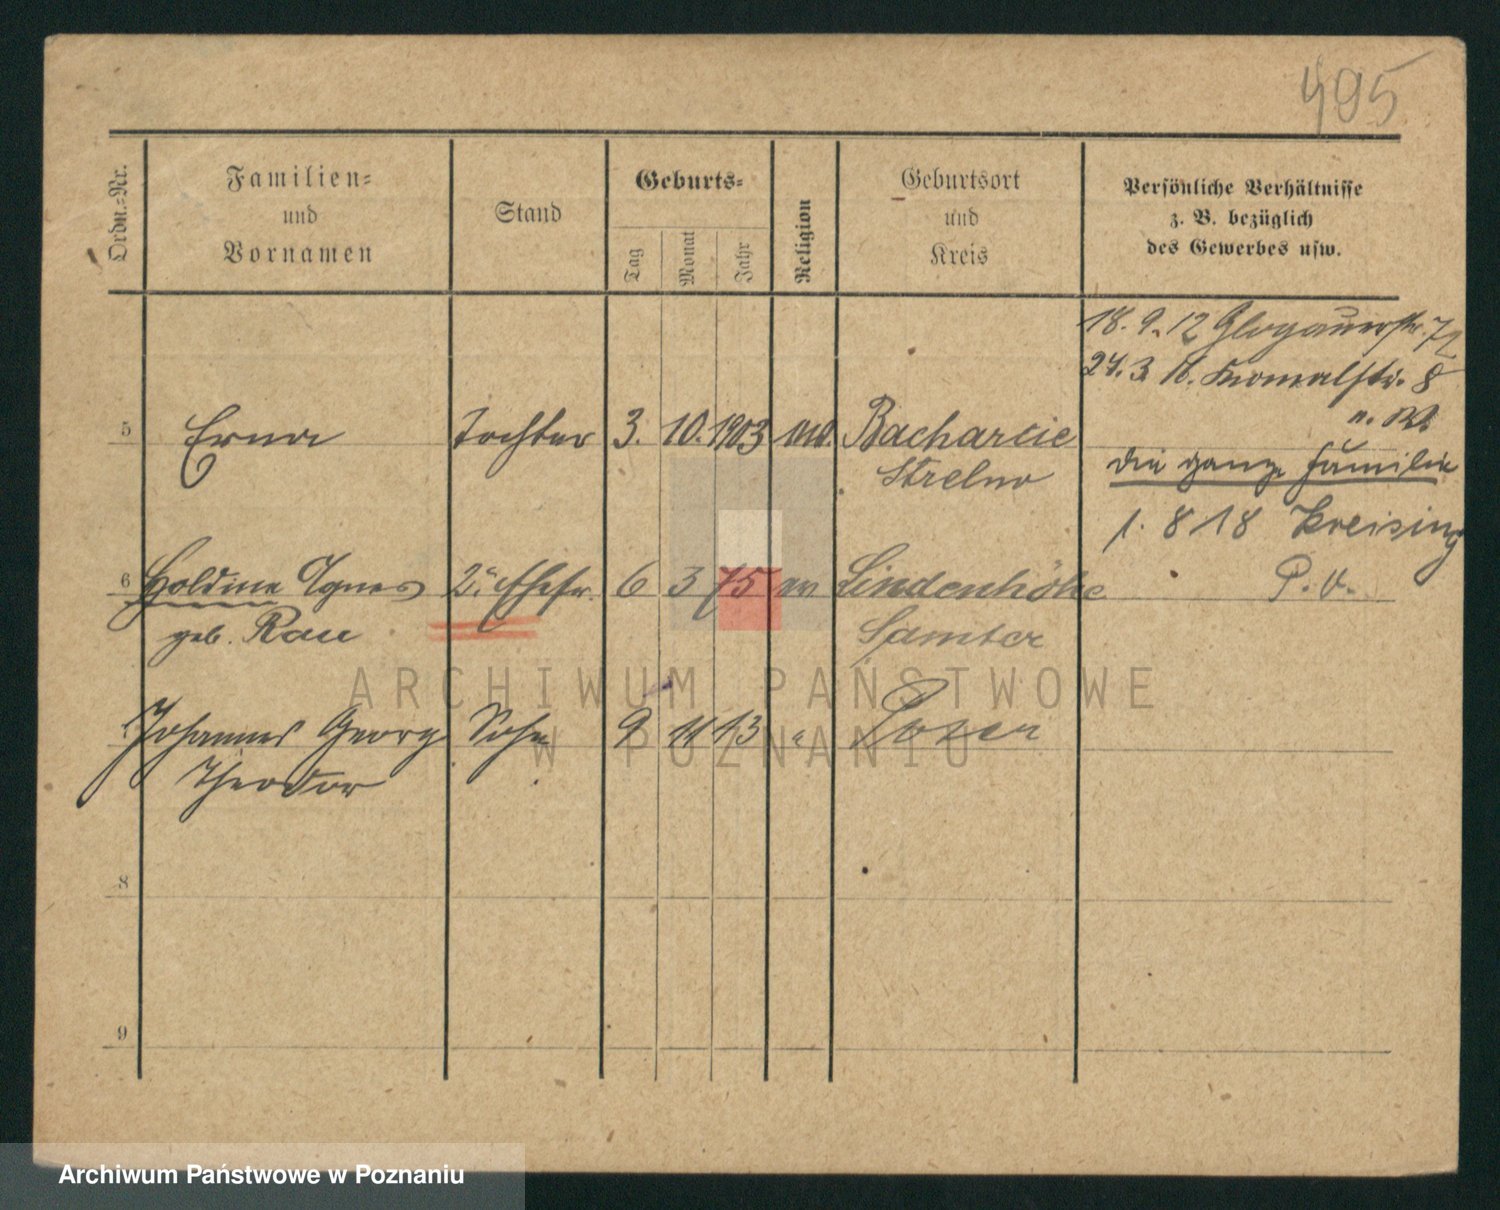 495
Ordn.-Nr.
Familien-
und
Vornamen
Stand
Geburts-
Tag
Monat
Jahr
Religion
Geburtsort
und
Kreis
Persönliche Verhältnisse
z. B. bezüglich
des Gewerbes usw.
18. 9. 12 Glogauerstr.
24. 3. 8
5 Erna Tochter 3. 10. 1903 Bacharcie
Strelno
die ganze Familie
1. 8 18 Kreising
P. v.
6 Holdine Agnes 2. Ehefr. 6 3 75 ev Lindenhöhe
geb. Rau Samter
Johannes Georg Sohn 9 11 13 " Posen
Theodor
8
9
ARCHIWUM PAŃSTWOWE
W POZNANIU
Archiwum Państwowe w Poznaniu